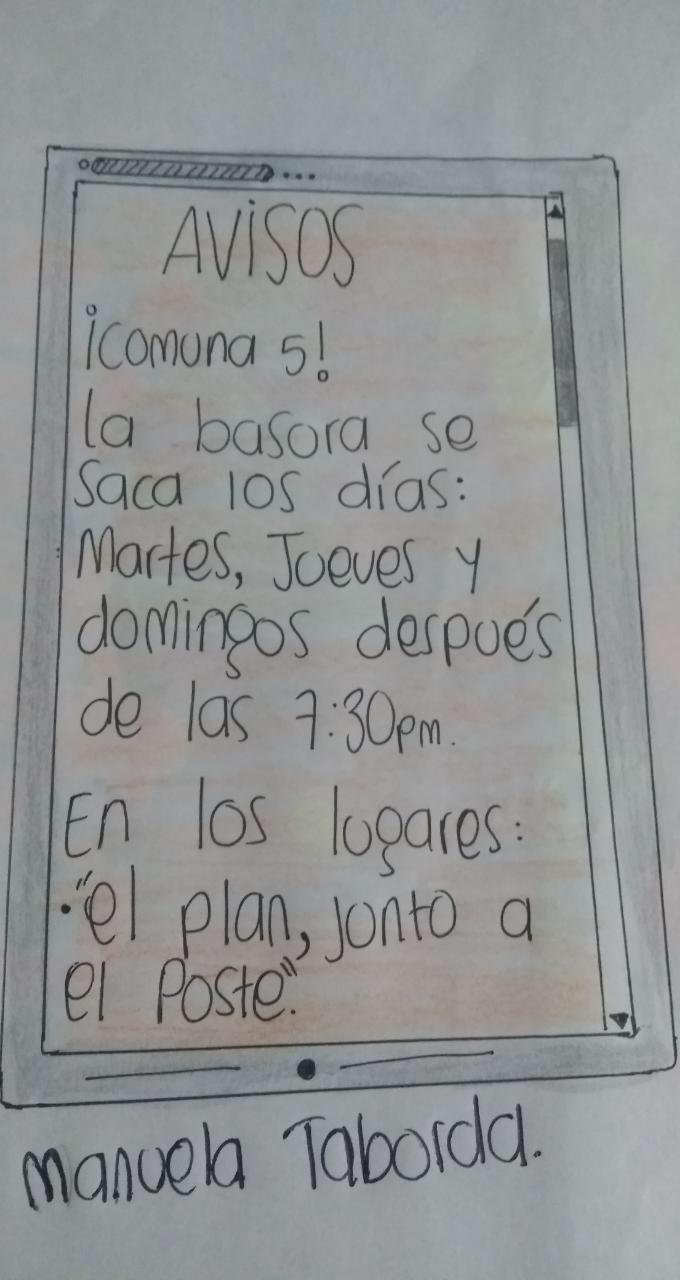 AVISOS
¡Comuna 5!
la basura se
saca los días:
Martes, Jueves y
domingos después
de las 7:30pm.
En los lugares:
•"el plan, junto a
el Poste".
Manuela Taborda.